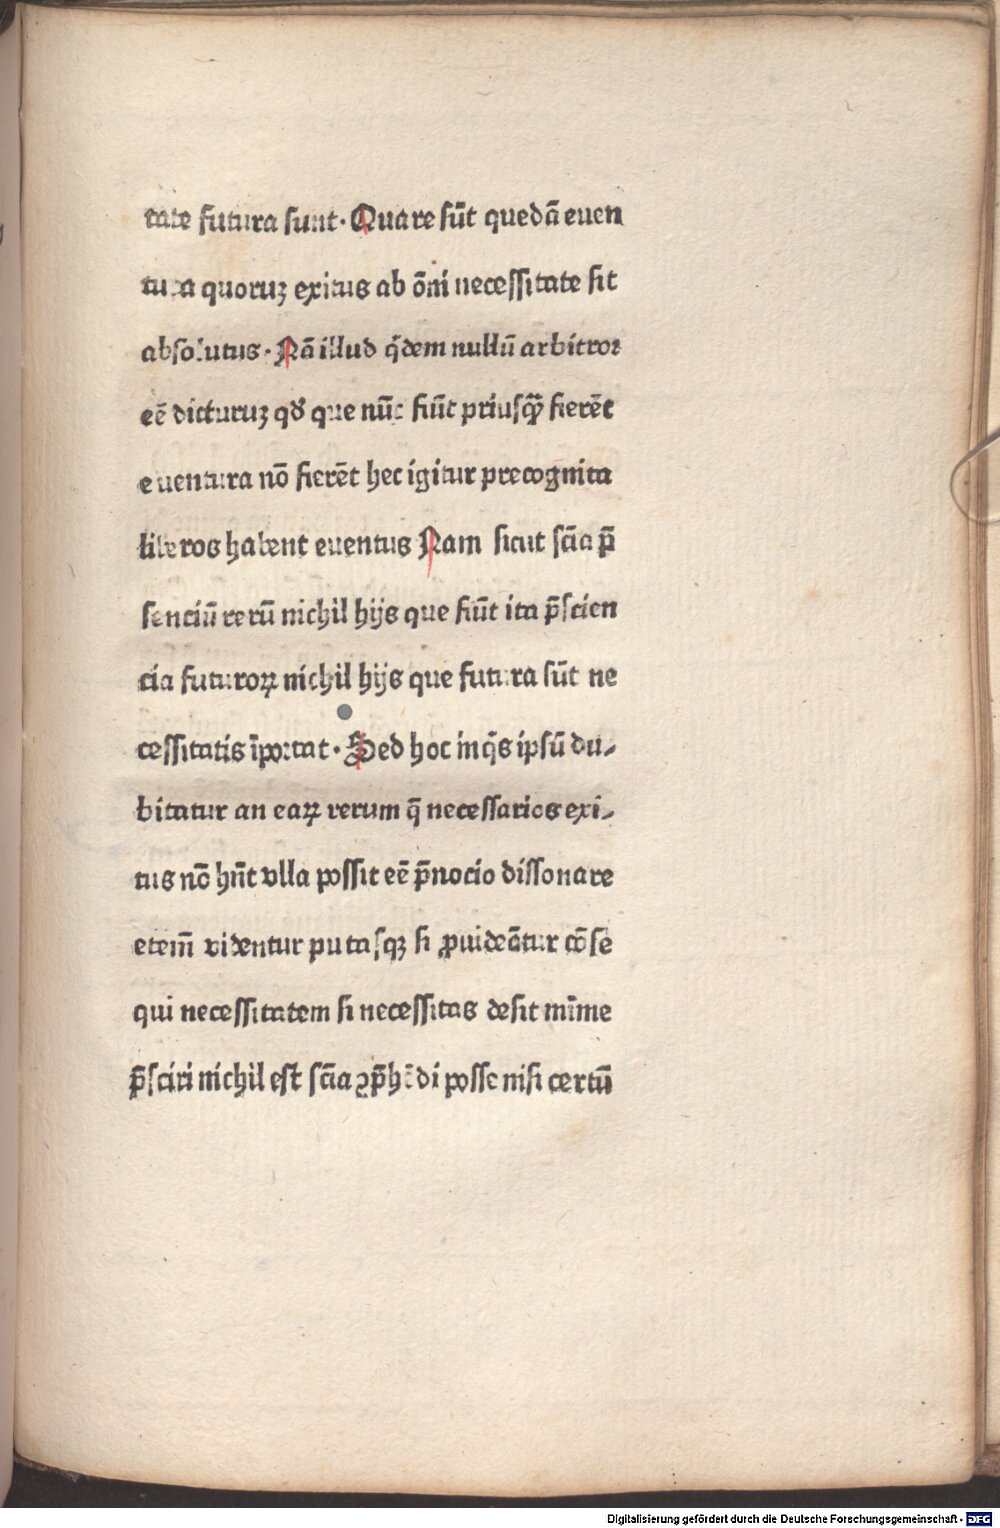 tate futura sunt· Quare sūt quedā euen
tura quoruꝫ exitus ab ōni necessitate sit
absolutus· Nā illud q̇dem nullū arbitror
eē dicturuꝫ qđ que nūc fiūt priusqͣꝫ fierēt
euentura nō fierēt hec igitur precognita
liberos habent euentus Nam sicut scīa p̄
senciū rerū nichil hijs que fiūt ita p̄scien
cia futuroꝝ nichil hijs que futura sūt ne
cessitatis īportat· Sed hoc inq̇s ipsū du⸗
bitatur an eaꝝ rerum q̄ necessarios exi⸗
tus nō hn̄t vlla possit eē p̄nocio dissonare
etem̄ videntur putasqꝫ si ꝓuideātur cōse
qui necessitatem si necessitas desit mīme
p̄sciri nichil est scīa ꝯp̄hēdi posse nisi certū
Digitalisierung gefördert durch die Deutsche Forschungsgemeinschaft - DFG